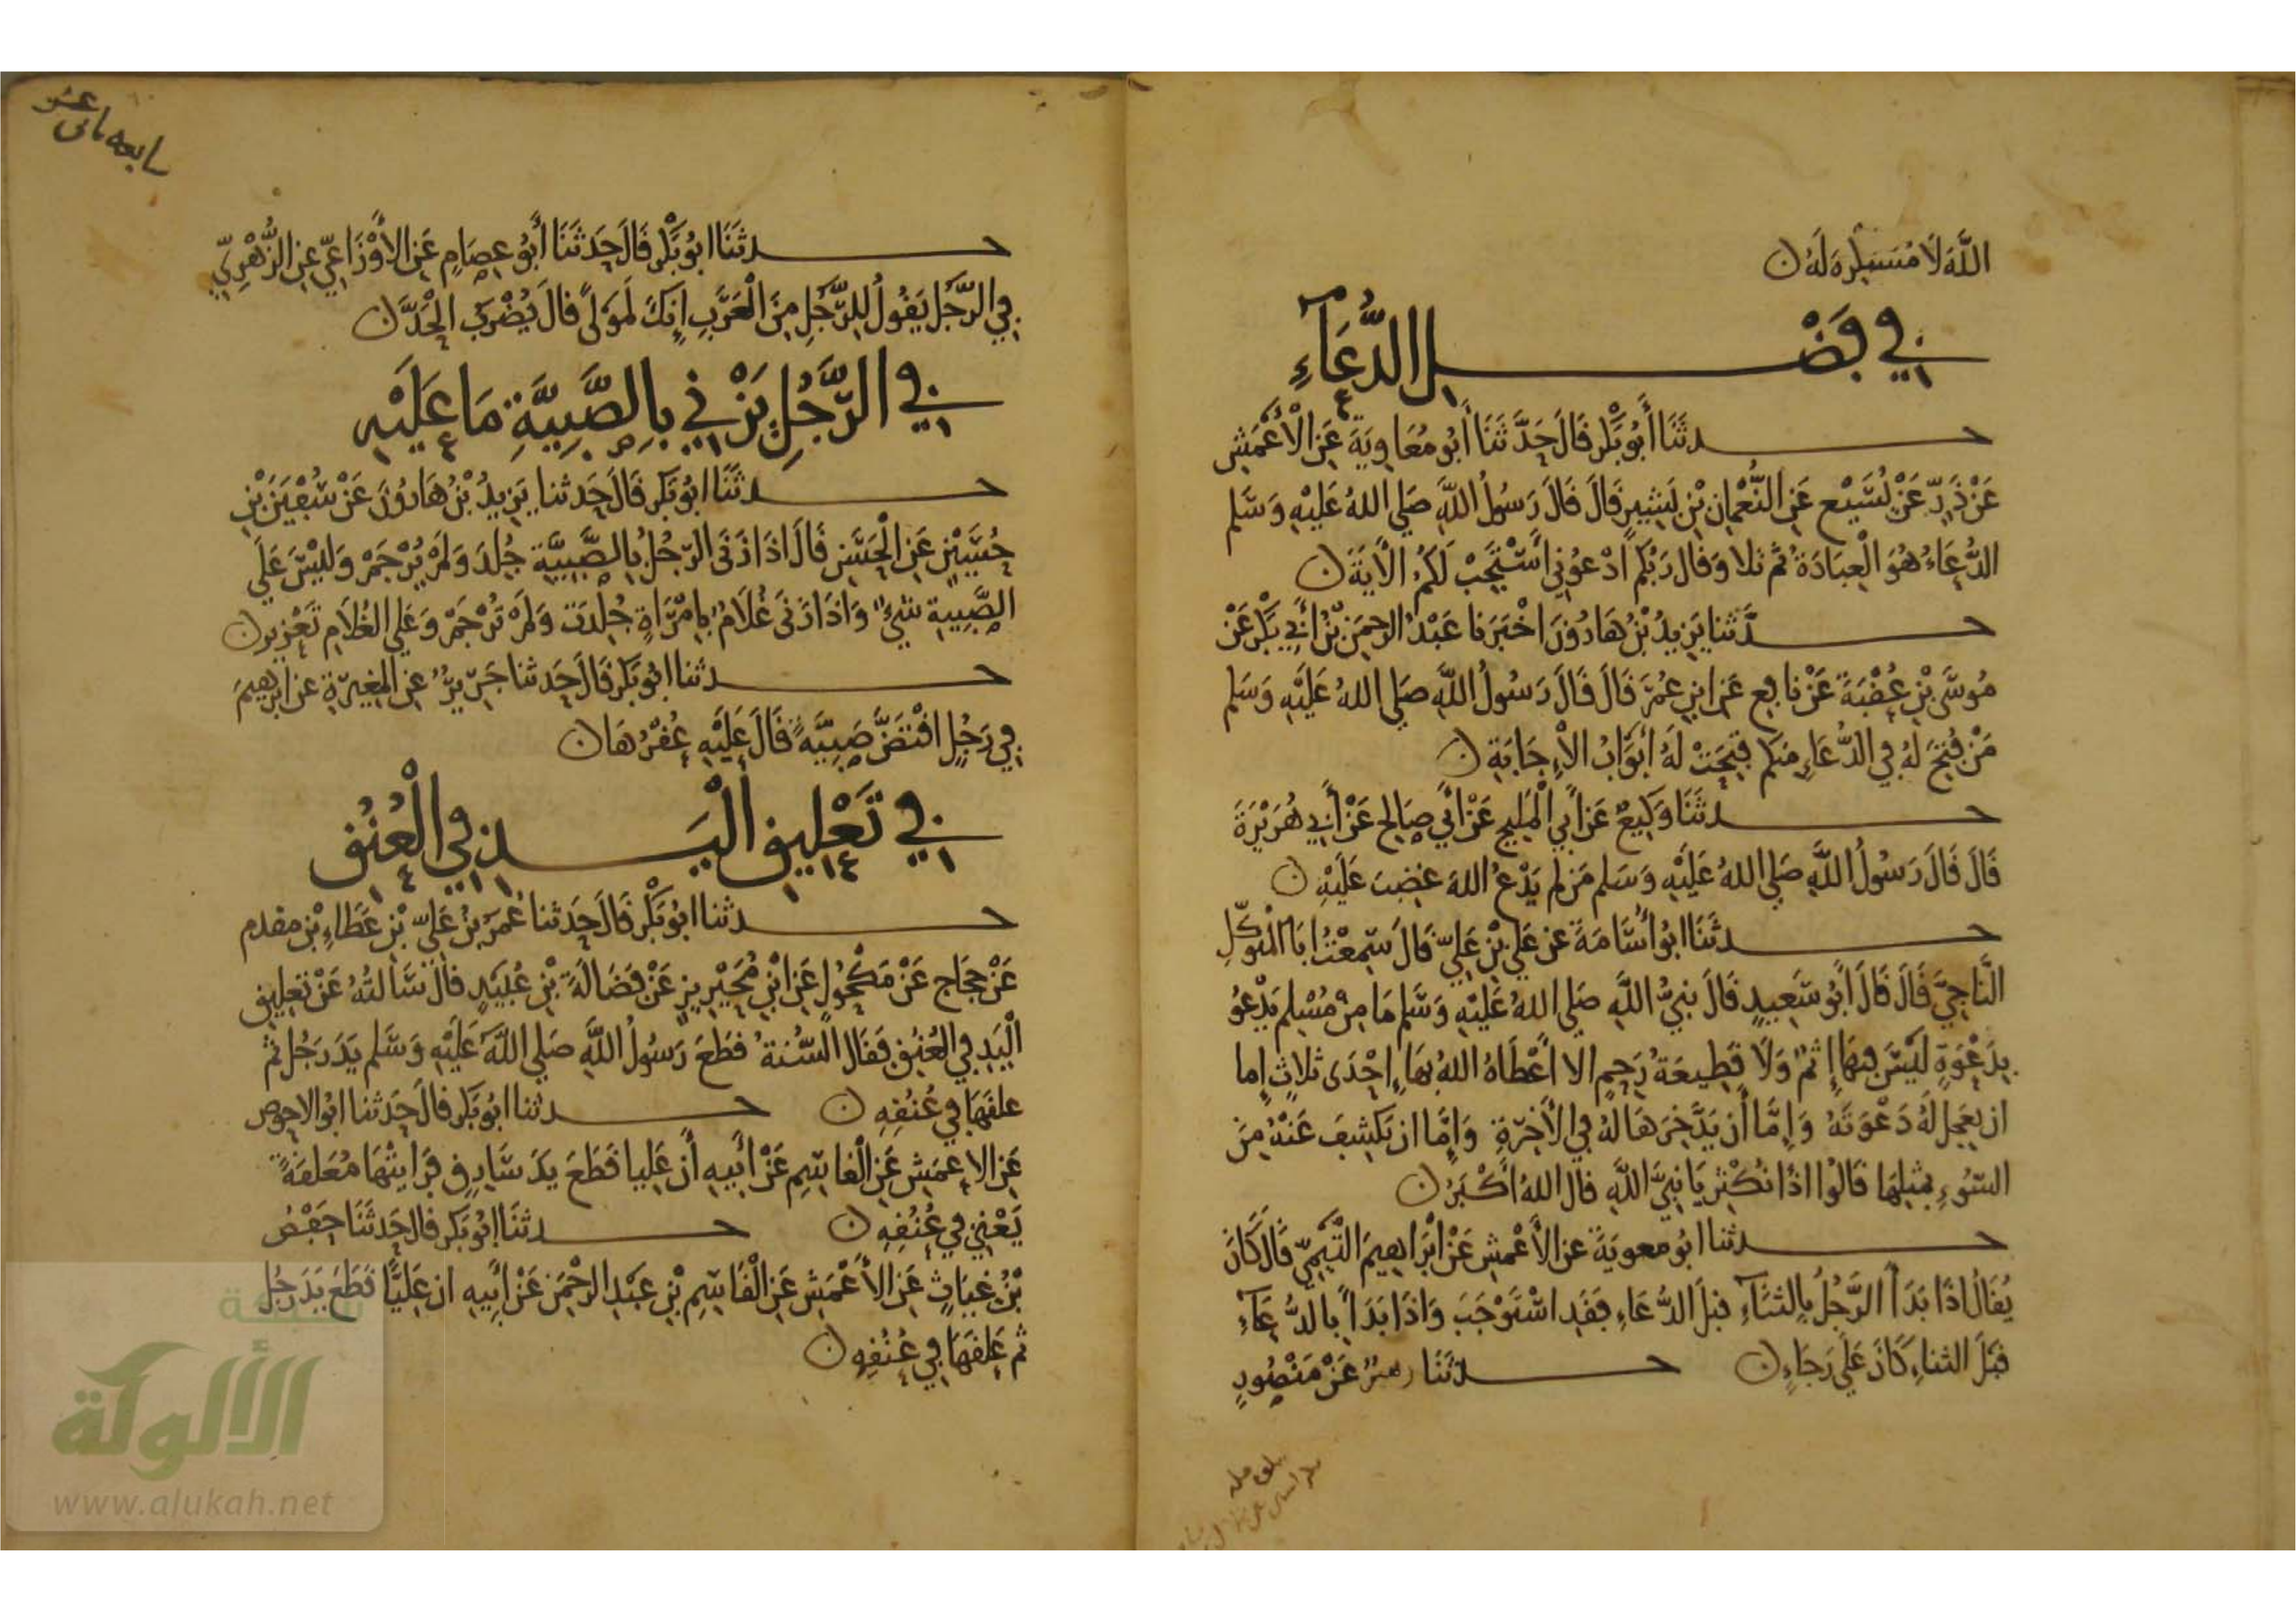 اللَّهَ لَا مُسْتَكْرِهَ لَهُ ن
فِي فَضْلِ الدُّعَاءِ
حدثَنَا أَبُو بَكْرٍ قَالَ حَدَّثَنَا أَبُو مُعَاوِيَةَ عَنِ الْأَعْمَشِ
عَنْ ذَرٍّ عَنْ يُسَيْعٍ عَنِ النُّعْمَانِ بْنِ بَشِيرٍ قَالَ قَالَ رَسُولُ اللَّهِ صَلى اللهُ عَلَيْهِ وَسَلم
الدُّعَاءُ هُوَ الْعِبَادَةُ ثم تلا وَقَالَ رَبُّكُم ادْعُونِي أَسْتَجِبْ لَكُمْ الْآيَةَ ن
حدَّثنا يَزِيدُ بْنُ هَارُونَ اخْبَرَنا عَبْدُ الرحمَنِ بْنُ أَبِي بَكْرٍ عَنْ
مُوسَى بْنِ عُقْبَةَ عَنْ نافِعٍ عَنِ ابْنِ عُمَرَ قَالَ قَالَ رَسُولُ اللَّهِ صَلى اللهُ عَلَيْهِ وَسَلم
مَنْ فُتِحَ لَهُ فِي الدُّعَاءِ مِنكم فُتِحَتْ لَهُ أَبْوَابُ الْإِجَابَةِ ن
حدثَنَا وَكِيعٌ عَنْ أَبِي الْمَلِيحِ عَنْ أَبِي صَالِحٍ عَنْ أَبِي هُرَيْرَةَ
قَالَ قَالَ رَسُولُ اللَّهِ صَلى اللهُ عَلَيْهِ وَسَلم مَن لم يَدْعُ اللهَ غَضِبَ عَلَيْهِ ن
حدثَنَا ابُو أُسَامَةَ عن عَلي بْنِ عَلِيٍّ قَالَ سَمِعْتُ ابَا الْمُتَوَكِّلِ
النَّاجِيَّ قَالَ قَالَ أَبُو سَعِيدٍ قَالَ نبيُّ اللَّهِ صَلى اللهُ عَلَيْهِ وَسَّلم مَا مِنْ مُسْلِمٍ يَدْعُو
بِدَعْوَةٍ لَيْسَ فِيهَا إِثْمٌ وَلَا قَطِيعَةُ رَحِمٍ الا أَعْطَاهُ اللهُ بِهَا إِحْدَى ثلاثٍ إِما
ان يعَجل لَهُ دَعْوَتَهُ وَإِمَّا أَن يَدَّخِرَهَا لهُ فِي الْآخِرَةِ وَإِمَّا ان يَكْشِفَ عَنْهُ مِنَ
السُّوءِ بمثلِهَا قَالُوا اذًا نُكْثِر يَا نَبِيَّ اللَّهِ قَال اللهُ أَكْبَرُ ن
حدثنا ابُو معوِيَةَ عن الأَعْمَشِ عَنْ ابْرَاهِيمَ التَّيْمِيِّ قَال كَانَ
يُقَالُ اذَا بَدَأَ الرَّجُلُ بِالثنَاءِ قبلَ الدُّعَاءِ فَقَدِ اسْتَوْجَبَ وَاذَا بَدَأَ بِالدُّعَاءِ
قَبْلَ الثناءِ كَانَ عَلَى رَجَاءٍ ن حدثَنَا جريرٌ عَنْ مَنْصُورٍ
حدثَنَا ابُو بَكْرٍ قَالَ حَدثَنَا أَبُو عِصَامٍ عَنِ الْأَوْزَاعِيِّ عنِ الزُّهْرِيِّ
فِي الرَّجُلِ يَقُولُ لِلرَّجُلِ مِنَ الْعَرَبِ إِنَّكَ لَمَوْلًى قَالَ يُضْرَبُ الْحَدَّ ن
فِي الرَّجُلِ يَزْنِي بِالصَّبِيَّةِ مَا عَلَيْهِ
حدثَنَا ابُو بَكرٍ قَالَ حَدثنا يَزِيدُ بْنُ هَارُونَ عَنْ سُفْيَنَ بْنِ
حُسَيْنٍ عَنِ الْحَسَنِ قَالَ اذَا زَنَى الرّجُلُ بِالصَّبِيَّةِ جُلِدَ وَلَمْ يُرْجَمْ وَلَيْسَ عَلَى
الصَّبِيةِ شَيْءٌ وَاذَا زَنَى غُلَامٌ بِامْرَأَةٍ جُلِدَتْ وَلَمْ تُرْجَمْ وَعَلى الغُلَامِ تَعْزِير ن
حدثنا ابُو بَكر قَالَ حَدثنا جَرِيرٌ عَنِ المغِيرَةِ عن ابرهِيمَ
فِي رَجُلٍ افْتَضَّ صَبِيَّةً قَالَ عَلَيْهِ عُقْرُهَا ن
فِي تَعْلِيقِ الْيَدِ فِي الْعُنُقِ
حدثنا ابُو بَكْرٍ قَالَ حَدثنا عُمَرُ بْنُ عَلِيّ بْنِ عَطَاءِ بْنِ مقدم
عَنْ حَجاج عَنْ مَكْحُولٍ عَنِ ابْنِ مُحَيْرِيزٍ عَنْ فَضَالَةَ بْنِ عُبَيْدٍ قَالَ سَألتُهُ عَنْ تعلِيقِ
الْيَدِ فِي الْعُنُقِ فَقَالَ السُّنةُ قطَعَ رَسُولُ اللَّهِ صَلى اللَّه عَلَيْهِ وَسَّلم يَدَ رَجُلٍ ثم
علقَهَا فِي عُنُقِهِ ن حدثنا ابُو بَكر قَالَ حَدثنا ابُو الاحوص
عَنِ الاعمَشِ عَنِ الْقاسِمِ عَنْ أَبِيهِ أَن عَلِيا قَطَعَ يَدَ سَارِقٍ فَرَأيْتُهَا مُعَلقَةً
يَعْنِي فِي عُنُقِهِ ن حدثَنَا ابُو بَكر قَال حَدثَنَا حَفْصُ
بْنُ غِيَاثٍ عَنِ الْأَعْمَشِ عَنِ الْقَاسِمِ بْنِ عَبْدِ الرحْمَنِ عَنْ أَبِيهِ ان عَلِيًّا قَطَعَ يَدَ رَجُلٍ
ثم عَلقَهَا فِي عُنُقِهِ ن
شبكة
الألوكة
www.alukah.net